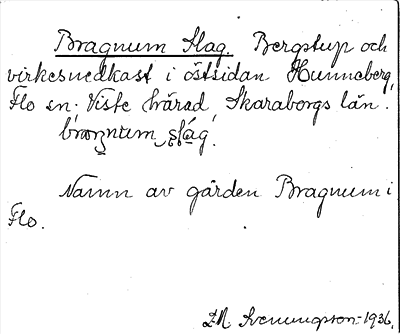 Bragnum Slag. Bergstup och
virkesnedkast i östsidan Hunneberg,
Flo sn. Viste härad, Skaraborgs län.
slag.
Namn av gården Bragnum i
Flo.
Sveningson 1936.